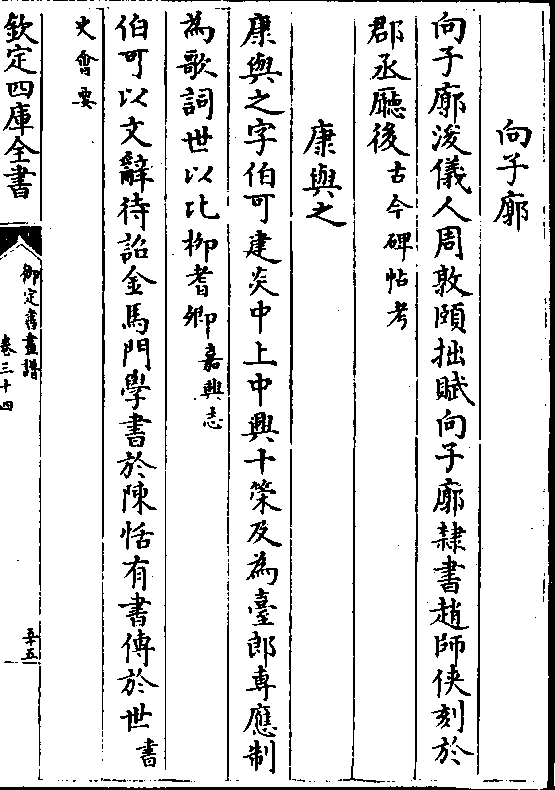 向子廓
向子廓浚儀人周敦頤拙賦向子廓隸書趙師俠刻於
郡丞廳後古今碑帖考
康與之
康與之字伯可建炎中上中興十策及為臺郎専應制
為歌詞世以比柳耆卿嘉興志
伯可以文辭待詔金馬門學書於陳恬有書傳於世書
史會要
欽定四庫全書
御定書畫譜
卷三十四
五十五